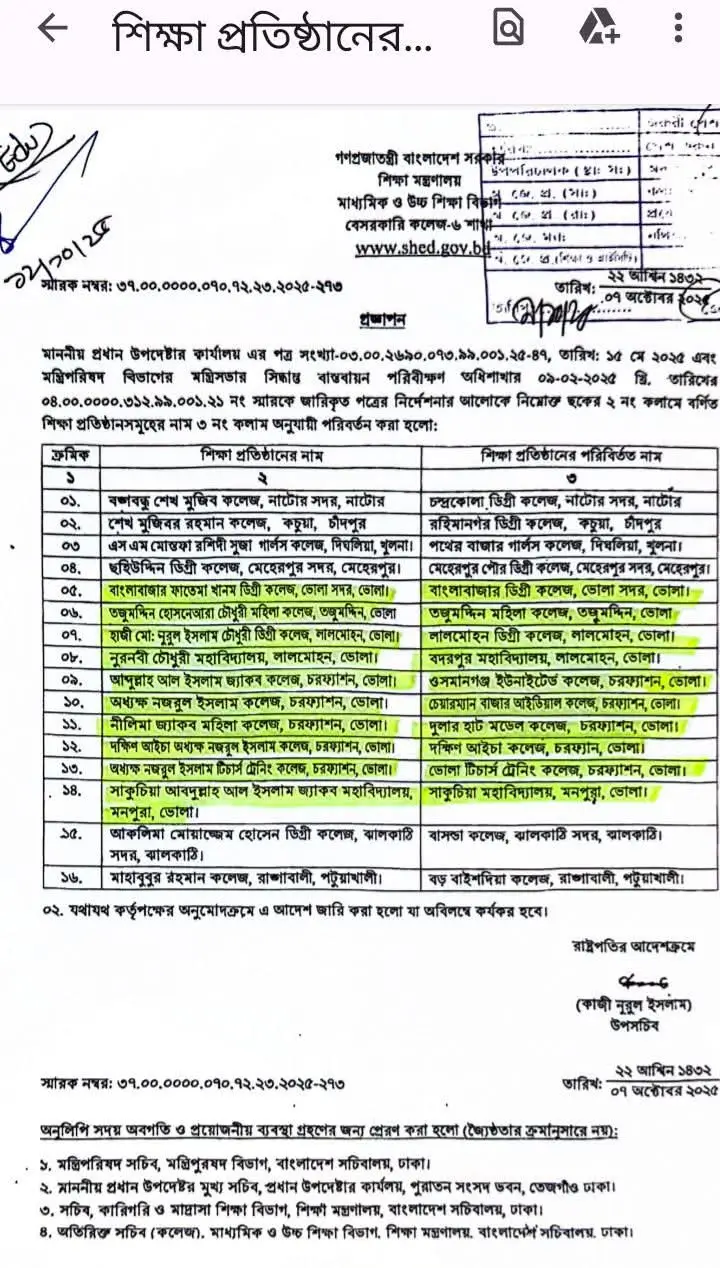 শিক্ষা প্রতিষ্ঠানের...
Edu
১২/১০/২৫
গণপ্রজাতন্ত্রী বাংলাদেশ সরকার
শিক্ষা মন্ত্রণালয়
মাধ্যমিক ও উচ্চ শিক্ষা বিভাগ
বেসরকারি কলেজ-৬ শাখা
www.shed.gov.bd
স্মারক নম্বর: ৩৭.০০.০০০০.০৭০.৭২.২৩.২০২৫-২৭৩
তারিখ: ২২ আশ্বিন ১৪৩২
০৭ অক্টোবর ২০২৫
প্রজ্ঞাপন
মাননীয় প্রধান উপদেষ্টার কার্যালয় এর পত্র সংখ্যা-০৩.০০.২৬৯০.০৭৩.৯৯.০০১.২৫-৪৭, তারিখ: ১৫ মে ২০২৫ এবং
মন্ত্রিপরিষদ বিভাগের মন্ত্রিসভার সিদ্ধান্ত বাস্তবায়ন পরিবীক্ষণ অধিশাখার ০৯-০২-২০২৫ খ্রি. তারিখের
০৪.০০.০০০০.৩১২.৯৯.০০১.২১ নং স্মারকে জারিকৃত পত্রের নির্দেশনার আলোকে নিম্নোক্ত ছকের ২ নং কলামে বর্ণিত
শিক্ষা প্রতিষ্ঠানসমূহের নাম ৩ নং কলাম অনুযায়ী পরিবর্তন করা হলো:
ক্রমিক শিক্ষা প্রতিষ্ঠানের নাম শিক্ষা প্রতিষ্ঠানের পরিবর্তিত নাম
১ ২ ৩
০১. বঙ্গবন্ধু শেখ মুজিব কলেজ, নাটোর সদর, নাটোর চন্দ্রকোলা ডিগ্রী কলেজ, নাটোর সদর, নাটোর
০২. শেখ মুজিবর রহমান কলেজ, কচুয়া, চাঁদপুর রহিমানগর ডিগ্রী কলেজ, কচুয়া, চাঁদপুর
০৩ এস এম মোস্তফা রশিদী সুজা গার্লস কলেজ, দিঘলিয়া, খুলনা। পথের বাজার গার্লস কলেজ, দিঘলিয়া, খুলনা।
০৪. ছহিউদ্দিন ডিগ্রী কলেজ, মেহেরপুর সদর, মেহেরপুর। মেহেরপুর পৌর ডিগ্রী কলেজ, মেহেরপুর সদর, মেহেরপুর।
০৫. বাংলাবাজার ফাতেমা খানম ডিগ্রী কলেজ, ভোলা সদর, ভোলা। বাংলাবাজার ডিগ্রী কলেজ, ভোলা সদর, ভোলা।
০৬. তজুমদ্দিন হোসনেআরা চৌধুরী মহিলা কলেজ, তজুমদ্দিন, ভোলা তজুমদ্দিন মহিলা কলেজ, তজুমদ্দিন, ভোলা
০৭. হাজী মো: নুরুল ইসলাম চৌধুরী ডিগ্রী কলেজ, লালমোহন, ভোলা। লালমোহন ডিগ্রী কলেজ, লালমোহন, ভোলা।
০৮. নুরনবী চৌধুরী মহাবিদ্যালয়, লালমোহন, ভোলা। বদরপুর মহাবিদ্যালয়, লালমোহন, ভোলা।
০৯. আব্দুল্লাহ আল ইসলাম জ্যাকব কলেজ, চরফ্যাশন, ভোলা। ওসমানগঞ্জ ইউনাইটেড কলেজ, চরফ্যাশন, ভোলা।
১০. অধ্যক্ষ নজরুল ইসলাম কলেজ, চরফ্যাশন, ভোলা। চেয়ারম্যান বাজার আইডিয়াল কলেজ, চরফ্যাশন, ভোলা।
১১. নীলিমা জ্যাকব মহিলা কলেজ, চরফ্যাশন, ভোলা। দুলার হাট মডেল কলেজ, চরফ্যাশন, ভোলা।
১২. দক্ষিণ আইচা অধ্যক্ষ নজরুল ইসলাম কলেজ, চরফ্যাশন, ভোলা। দক্ষিণ আইচা কলেজ, চরফ্যান, ভোলা।
১৩. অধ্যক্ষ নজরুল ইসলাম টিচার্স ট্রেনিং কলেজ, চরফ্যাশন, ভোলা। ভোলা টিচার্স ট্রেনিং কলেজ, চরফ্যাশন, ভোলা।
১৪. সাকুচিয়া আবদুল্লাহ আল ইসলাম জ্যাকব মহাবিদ্যালয়, সাকুচিয়া মহাবিদ্যালয়, মনপুরা, ভোলা।
মনপুরা, ভোলা।
১৫. আকলিমা মোয়াজ্জেম হোসেন ডিগ্রী কলেজ, ঝালকাঠি বাসন্ডা কলেজ, ঝালকাঠি সদর, ঝালকাঠি।
সদর, ঝালকাঠি।
১৬. মাহাবুবুর রহমান কলেজ, রাঙ্গাবালী, পটুয়াখালী। বড় বাইশদিয়া কলেজ, রাঙ্গাবালী, পটুয়াখালী।
০২. যথাযথ কর্তৃপক্ষের অনুমোদক্রমে এ আদেশ জারি করা হলো যা অবিলম্বে কার্যকর হবে।
রাষ্ট্রপতির আদেশক্রমে
(কাজী নুরুল ইসলাম)
উপসচিব
স্মারক নম্বর: ৩৭.০০.০০০০.০৭০.৭২.২৩.২০২৫-২৭৩
তারিখ: ২২ আশ্বিন ১৪৩২
০৭ অক্টোবর ২০২৫
অনুলিপি সদয় অবগতি ও প্রয়োজনীয় ব্যবস্থা গ্রহণের জন্য প্রেরণ করা হলো (জ্যৈষ্ঠতার ক্রমানুসারে নয়):
১. মন্ত্রিপরিষদ সচিব, মন্ত্রিপুরষদ বিভাগ, বাংলাদেশ সচিবালয়, ঢাকা।
২. মাননীয় প্রধান উপদেষ্টর মুখ্য সচিব, প্রধান উপদেষ্টার কার্যলয়, পুরাতন সংসদ ভবন, তেজগাঁও ঢাকা।
৩. সচিব, কারিগরি ও মাদ্রাসা শিক্ষা বিভাগ, শিক্ষা মন্ত্রণালয়, বাংলাদেশ সচিবালয়, ঢাকা।
৪. অতিরিক্ত সচিব (কলেজ), মাধ্যমিক ও উচ্চ শিক্ষা বিভাগ, শিক্ষা মন্ত্রণালয়, বাংলাদেশ সচিবালয়, ঢাকা।